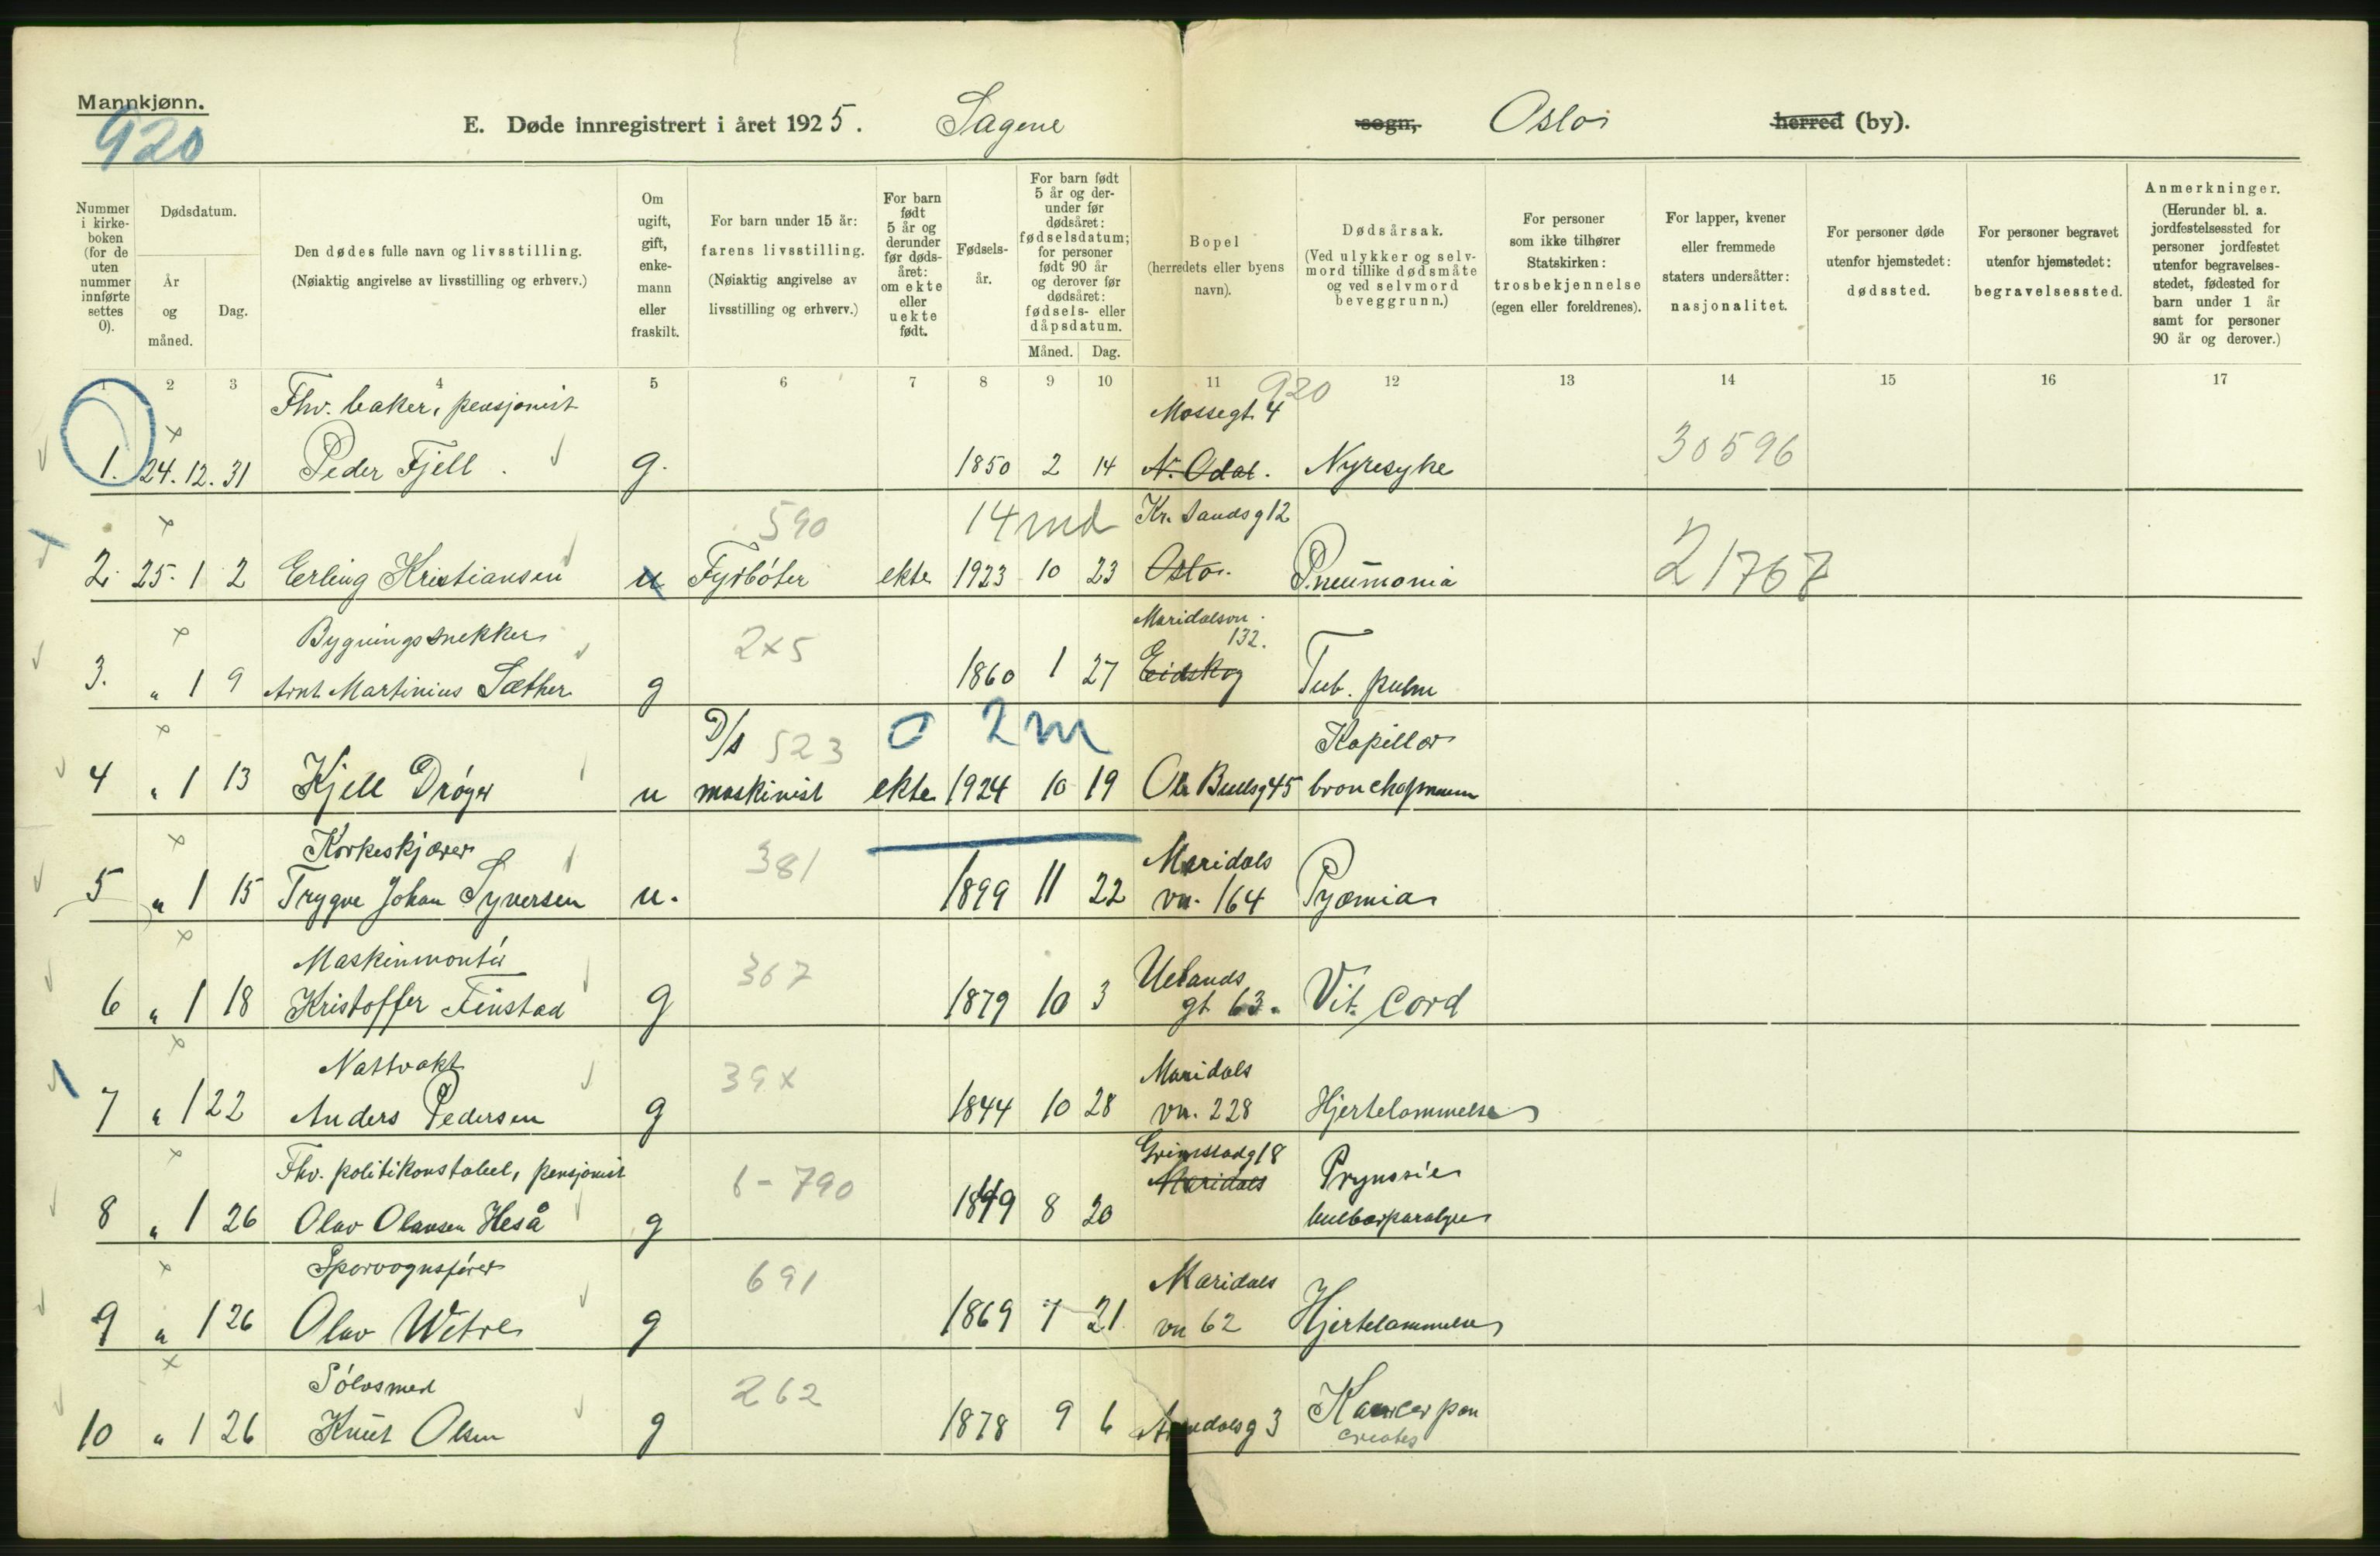 Mannkjønn.
920
E. Døde innregistrert i året 1925. Sagene sogn, Oslo herred (by).
Nummer i kirkeboken (for de uten nummer innførte settes 0).
Dødsdatum.
År og måned.
Dag.
Den dødes fulle navn og livsstilling.
(Nøiaktig angivelse av livsstilling og erhverv.)
Om ugift, gift, enkemann eller fraskilt.
For barn under 15 år: farens livsstilling.
(Nøiaktig angivelse av livsstilling og erhverv.)
For barn født 5 år og derunder før dødsåret: om ekte eller uekte født.
Fødselsår.
For barn født 5 år og derunder før dødsåret: fødselsdatum; for personer født 90 år og derover før dødsåret: fødsels- eller dåpsdatum.
Måned. Dag.
Bopel
(herredets eller byens navn).
Dødsårsak.
(Ved ulykker og selvmord tillike dødsmåte og ved selvmord beveggrunn.)
For personer som ikke tilhører Statskirken: trosbekjennelse (egen eller foreldrenes).
For lapper, kvener eller fremmede staters undersåtter: nasjonalitet.
For personer døde utenfor hjemstedet: dødssted.
For personer begravet utenfor hjemstedet: begravelsessted.
Anmerkninger.
(Herunder bl. a. jordfestelsessted for personer jordfestet utenfor begravelsesstedet, fødested for barn under 1 år samt for personer 90 år og derover.)
1 2 3 4 5 6 7 8 9 10 11 12 13 14 15 16 17
Fhv. baker, pensjonist Mossegt. 4 920
1. 24. 12. 31 Peder Fjell. g. 1850 2 14 N. Odal. Nyresyke 30596
590 14 md Kr. sandsg 12
2. 25. 1 2 Erling Kristiansen u Fyrbøter ekte 1923 10 23 Oslo. Pneumonia 21767
Bygningssnekker 2x5 Maridalsvn. 132.
3. " 1 9 Arnt Martinius Sæther g 1860 1 27 Eidskog Tub. pulm
D/s 523 0 2m Kapillær
4 " 1 13 Kjell Drøger u maskinist ekte 1924 10 19 Ole Bullsg 45 bronchopneum
Korkeskjærer 381 Maridals
5 " 1 15 Trygve Johan Syversen u. 1899 11 22 vn. 164 Pyæmia
Maskinmontør 367 Uelands
6 " 1 18 Kristoffer Finstad g 1879 10 3 gt 63. Vit. cord
Nattvakt 39x Maridals
7 " 1 22 Anders Pedersen g 1844 10 28 vn. 228 Hjertelammelse
Fhv. politikonstabel, pensjonist 6-790 Grimstadg 18 Maridals
8 " 1 26 Olav Olavsen Heså g 1849 8 20 bulbærparalyse
Sporvognsfører 691 Maridals
9 " 1 26 Olav Wetre g 1869 7 21 vn 62 Hjertelammelse
Sølvsmed 262 Kancer pan
10 " 1 26 Knut Olsen g 1878 9 6 Arendalsg 3 creates